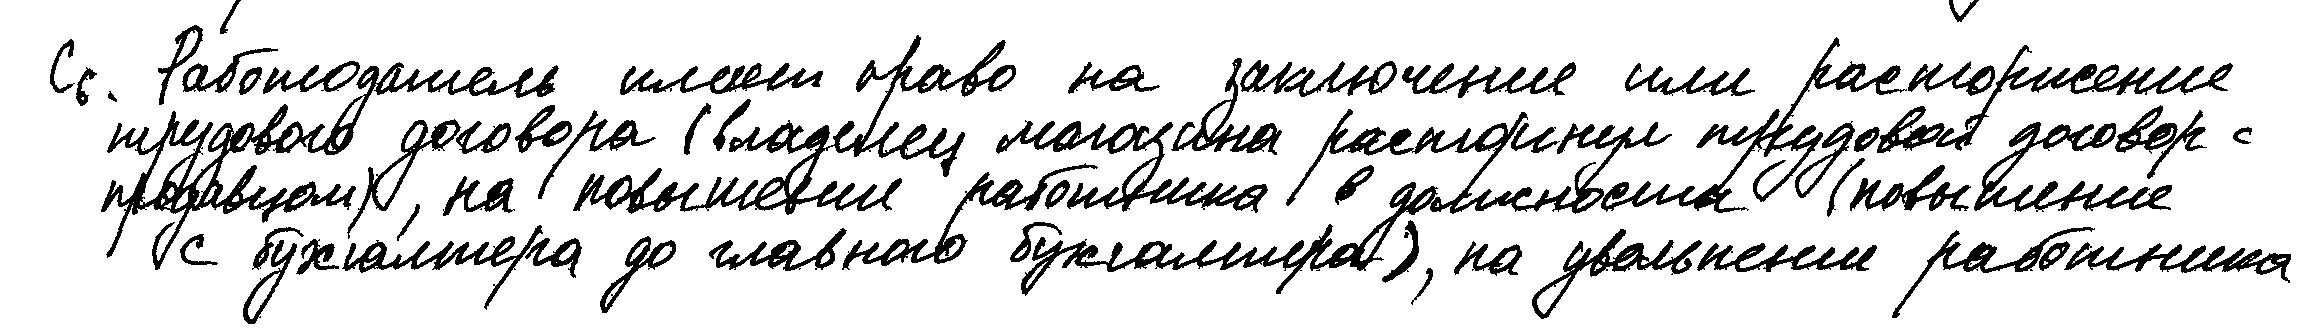 С6. Работодатель имеет право на заключение или расторжение
трудового договора (владелец магазина расторгнул трудовой договор с
продавцом), на повышение работника в должности (повышение
с бухгалтера до главного бухгалтера), на увольнение работника